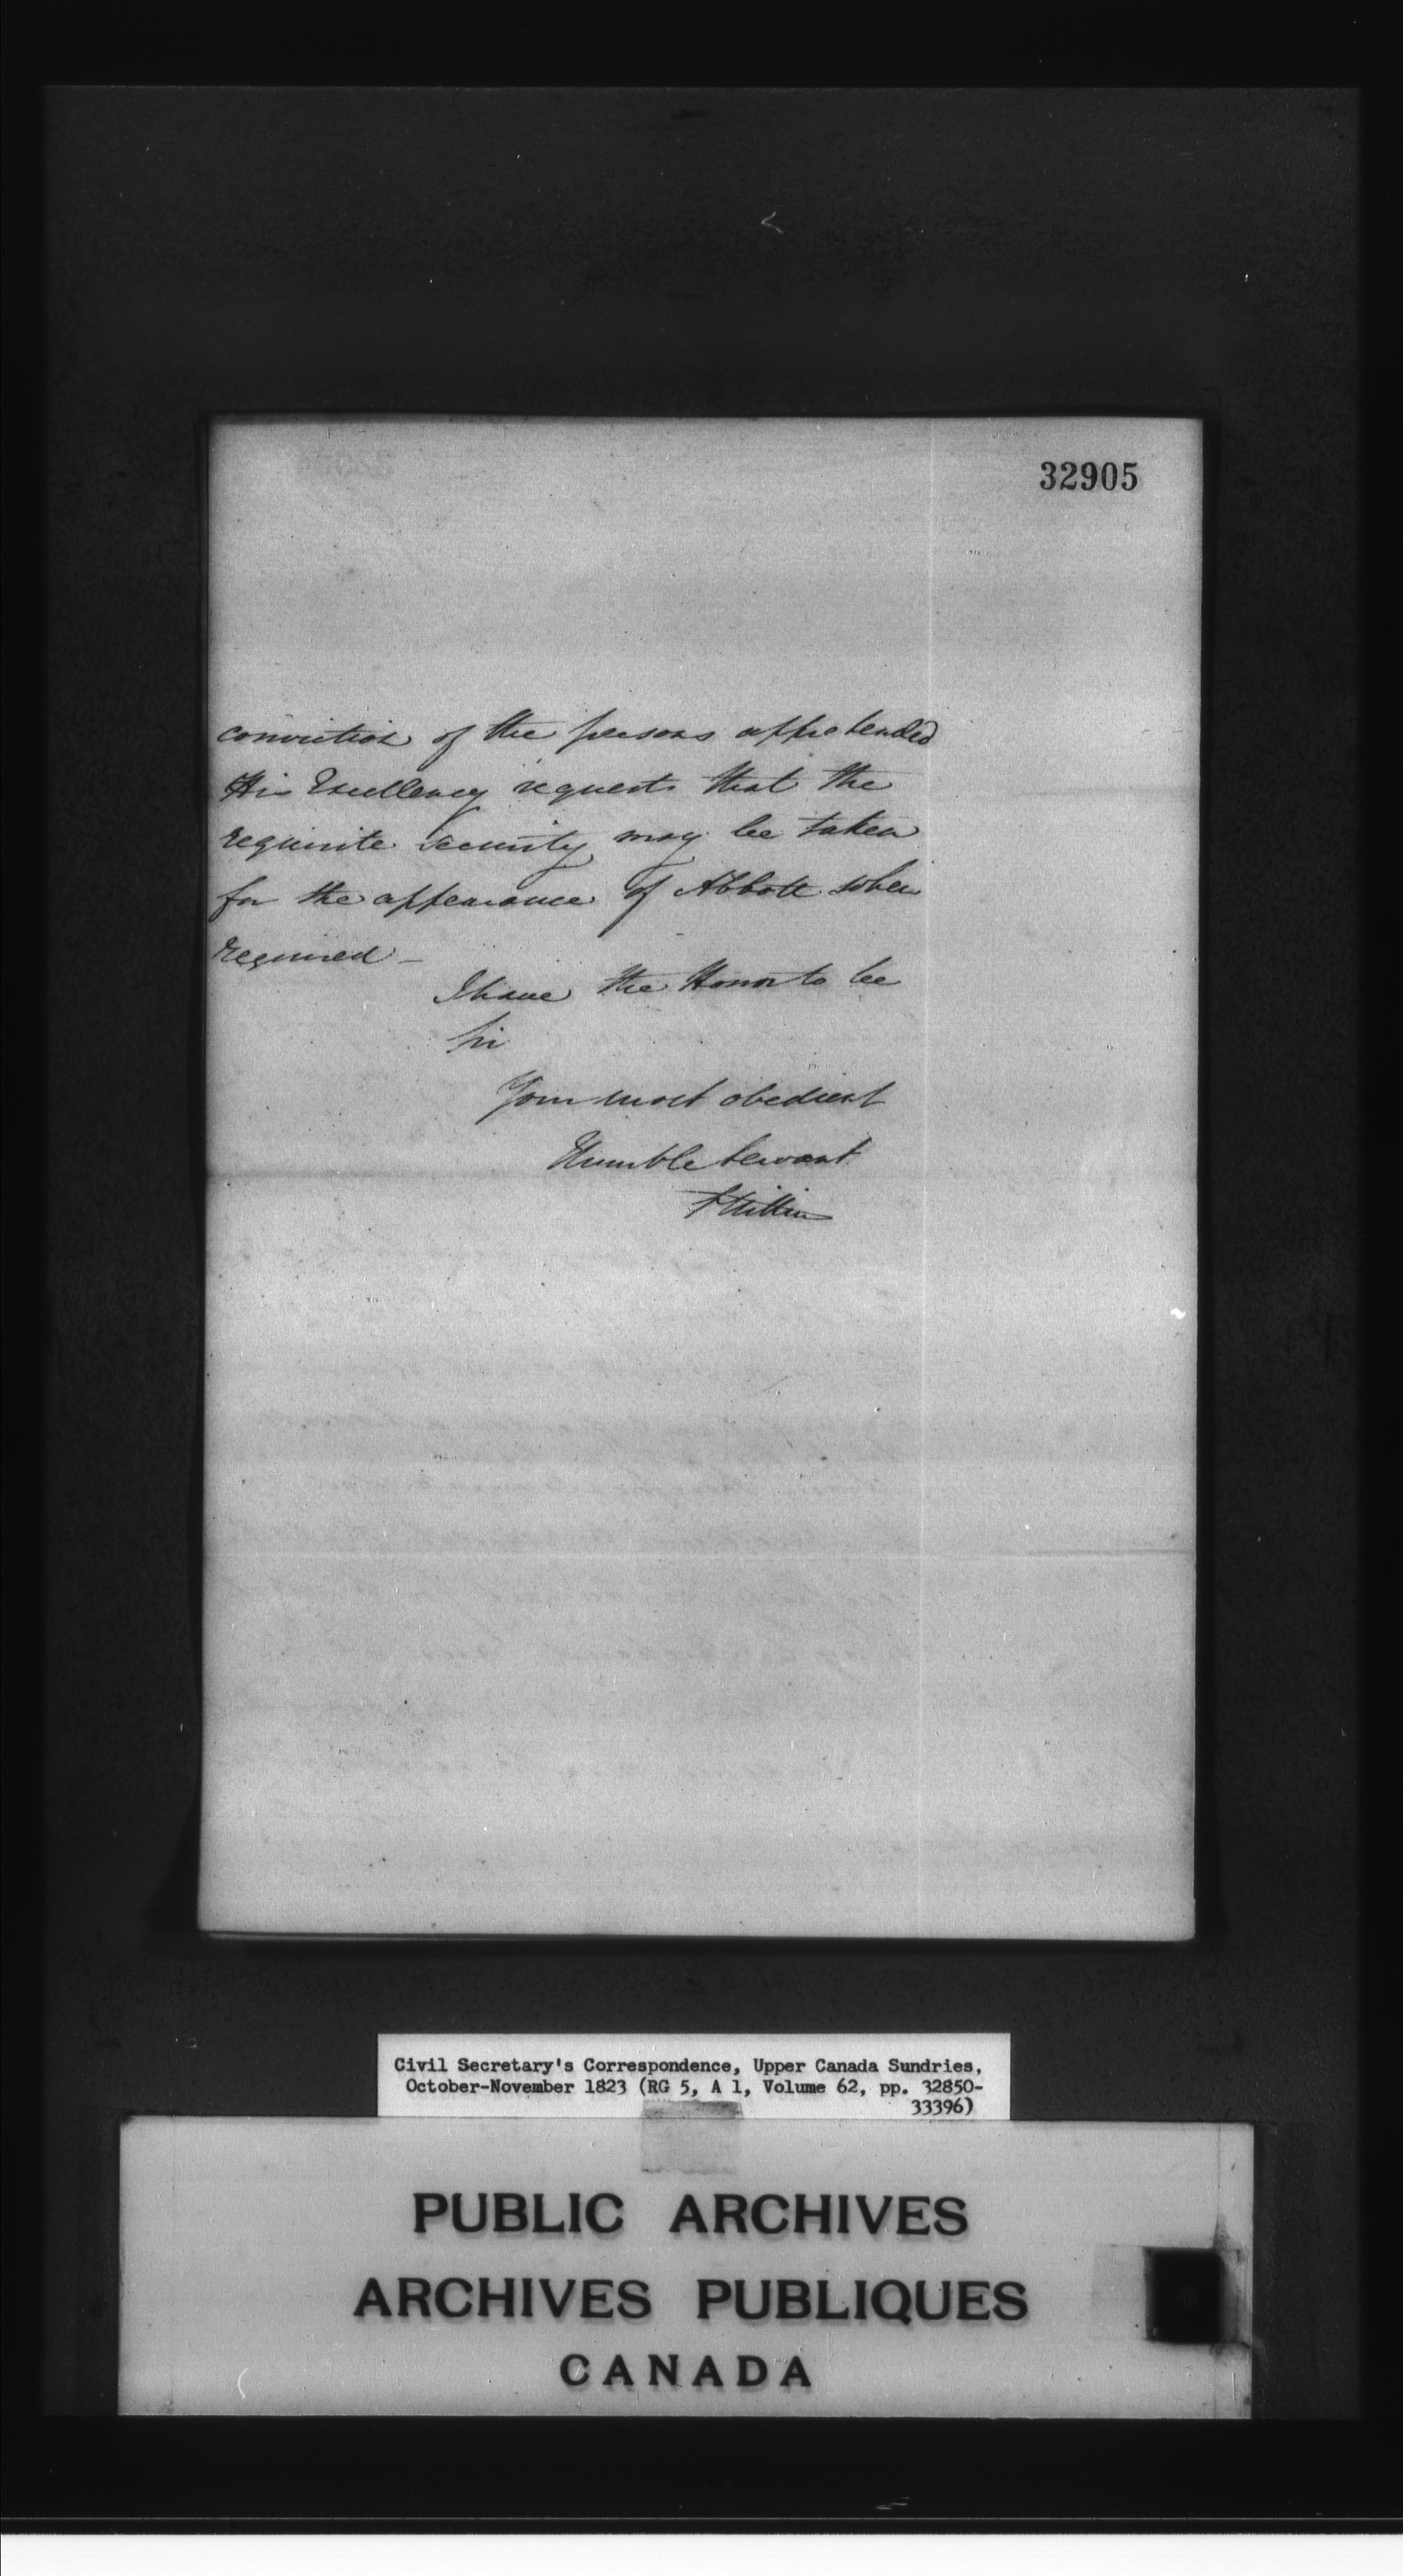 32905
conviction of the persons apprehended
His Excellency requests that the
requisite security may be taken
for the appearance of Abbott when
required —
I have the Honor to be
Sir
Your most obedient
Humble Servant
Civil Secretary's Correspondence, Upper Canada Sundries,
October-November 1823 (RG 5, A 1, Volume 62, pp. 32850-
33396)
PUBLIC ARCHIVES
ARCHIVES PUBLIQUES
CANADA